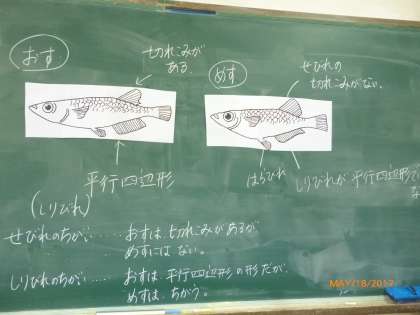 おす
切れこみが
ある。
めす
せびれの
切れこみがない。
平行四辺形
(しりびれ)
はらびれ
しりびれが平行四辺形で
な
せびれのちがい……おすは切れこみがあるが
めすにはない。
しりびれのちがい……おすは平行四辺形の形だが
めすはちがう。
MAY/18/2017